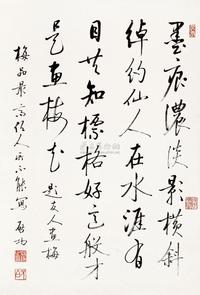 墨痕濃淡影橫斜
綽約仙人在水涯有
目共知標格好這般才
是畫梅花 題友人畫梅
梅品最高俗人所不能寫 啟功